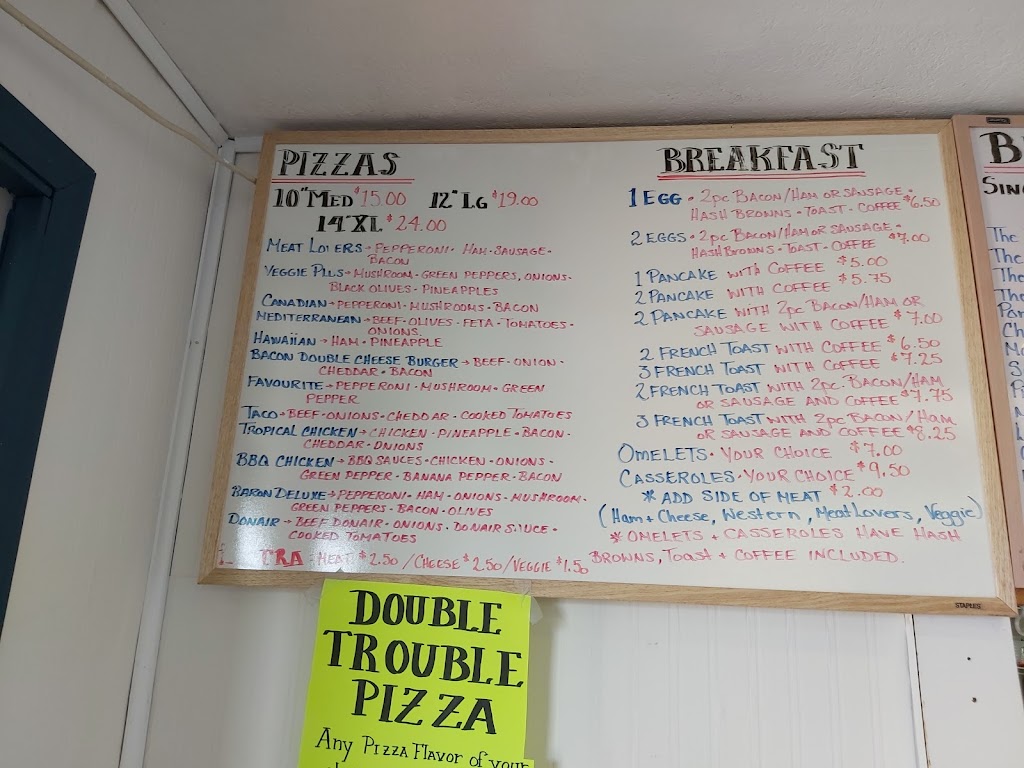 PIZZAS
10" MED $15.00 12" LG $19.00
14" XL $24.00
MEAT LOVERS → PEPPERONI · HAM · SAUSAGE ·
BACON
VEGGIE PLUS → MUSHROOM · GREEN PEPPERS, ONIONS ·
BLACK OLIVES · PINEAPPLES
CANADIAN → PEPPERONI · MUSHROOMS · BACON
MEDITERRANEAN → BEEF · OLIVES · FETA · TOMATOES ·
ONIONS.
HAWAIIAN → HAM · PINEAPPLE
BACON DOUBLE CHEESE BURGER → BEEF · ONION ·
CHEDDAR · BACON
FAVOURITE → PEPPERONI · MUSHROOM · GREEN
PEPPER
TACO → BEEF · ONIONS · CHEDDAR · COOKED TOMATOES
TROPICAL CHICKEN → CHICKEN · PINEAPPLE · BACON ·
CHEDDAR · ONIONS
BBQ CHICKEN → BBQ SAUCES · CHICKEN · ONIONS ·
GREEN PEPPER · BANANA PEPPER · BACON
BARON DELUXE → PEPPERONI · HAM · ONIONS · MUSHROOM ·
GREEN PEPPERS · BACON · OLIVES
DONAIR → BEEF DONAIR · ONIONS · DONAIR SAUCE ·
COOKED TOMATOES
TRA MEAT $2.50 / CHEESE $2.50 / VEGGIE $1.50
BREAKFAST
1 EGG · 2pc BACON/HAM OR SAUSAGE ·
HASH BROWNS · TOAST · COFFEE $6.50
2 EGGS · 2pc BACON/HAM OR SAUSAGE ·
HASH BROWNS · TOAST · COFFEE $7.00
1 PANCAKE WITH COFFEE $5.00
2 PANCAKE WITH COFFEE $5.75
2 PANCAKE WITH 2pc BACON/HAM OR
SAUSAGE WITH COFFEE $7.00
2 FRENCH TOAST WITH COFFEE $6.50
3 FRENCH TOAST WITH COFFEE $7.25
2 FRENCH TOAST WITH 2pc. BACON/HAM
OR SAUSAGE AND COFFEE $7.75
3 FRENCH TOAST WITH 2pc BACON/HAM
OR SAUSAGE AND COFFEE $8.25
OMELETS · YOUR CHOICE $7.00
CASSEROLES · YOUR CHOICE $9.50
* ADD SIDE OF MEAT $2.00
(Ham + Cheese, Western, Meat Lovers, Veggie)
* OMELETS + CASSEROLES HAVE HASH
BROWNS, TOAST + COFFEE INCLUDED.
STAPLES
DOUBLE
TROUBLE
PIZZA
Any PIZZA FLAVOR of your
B
SING
The
The
The
The